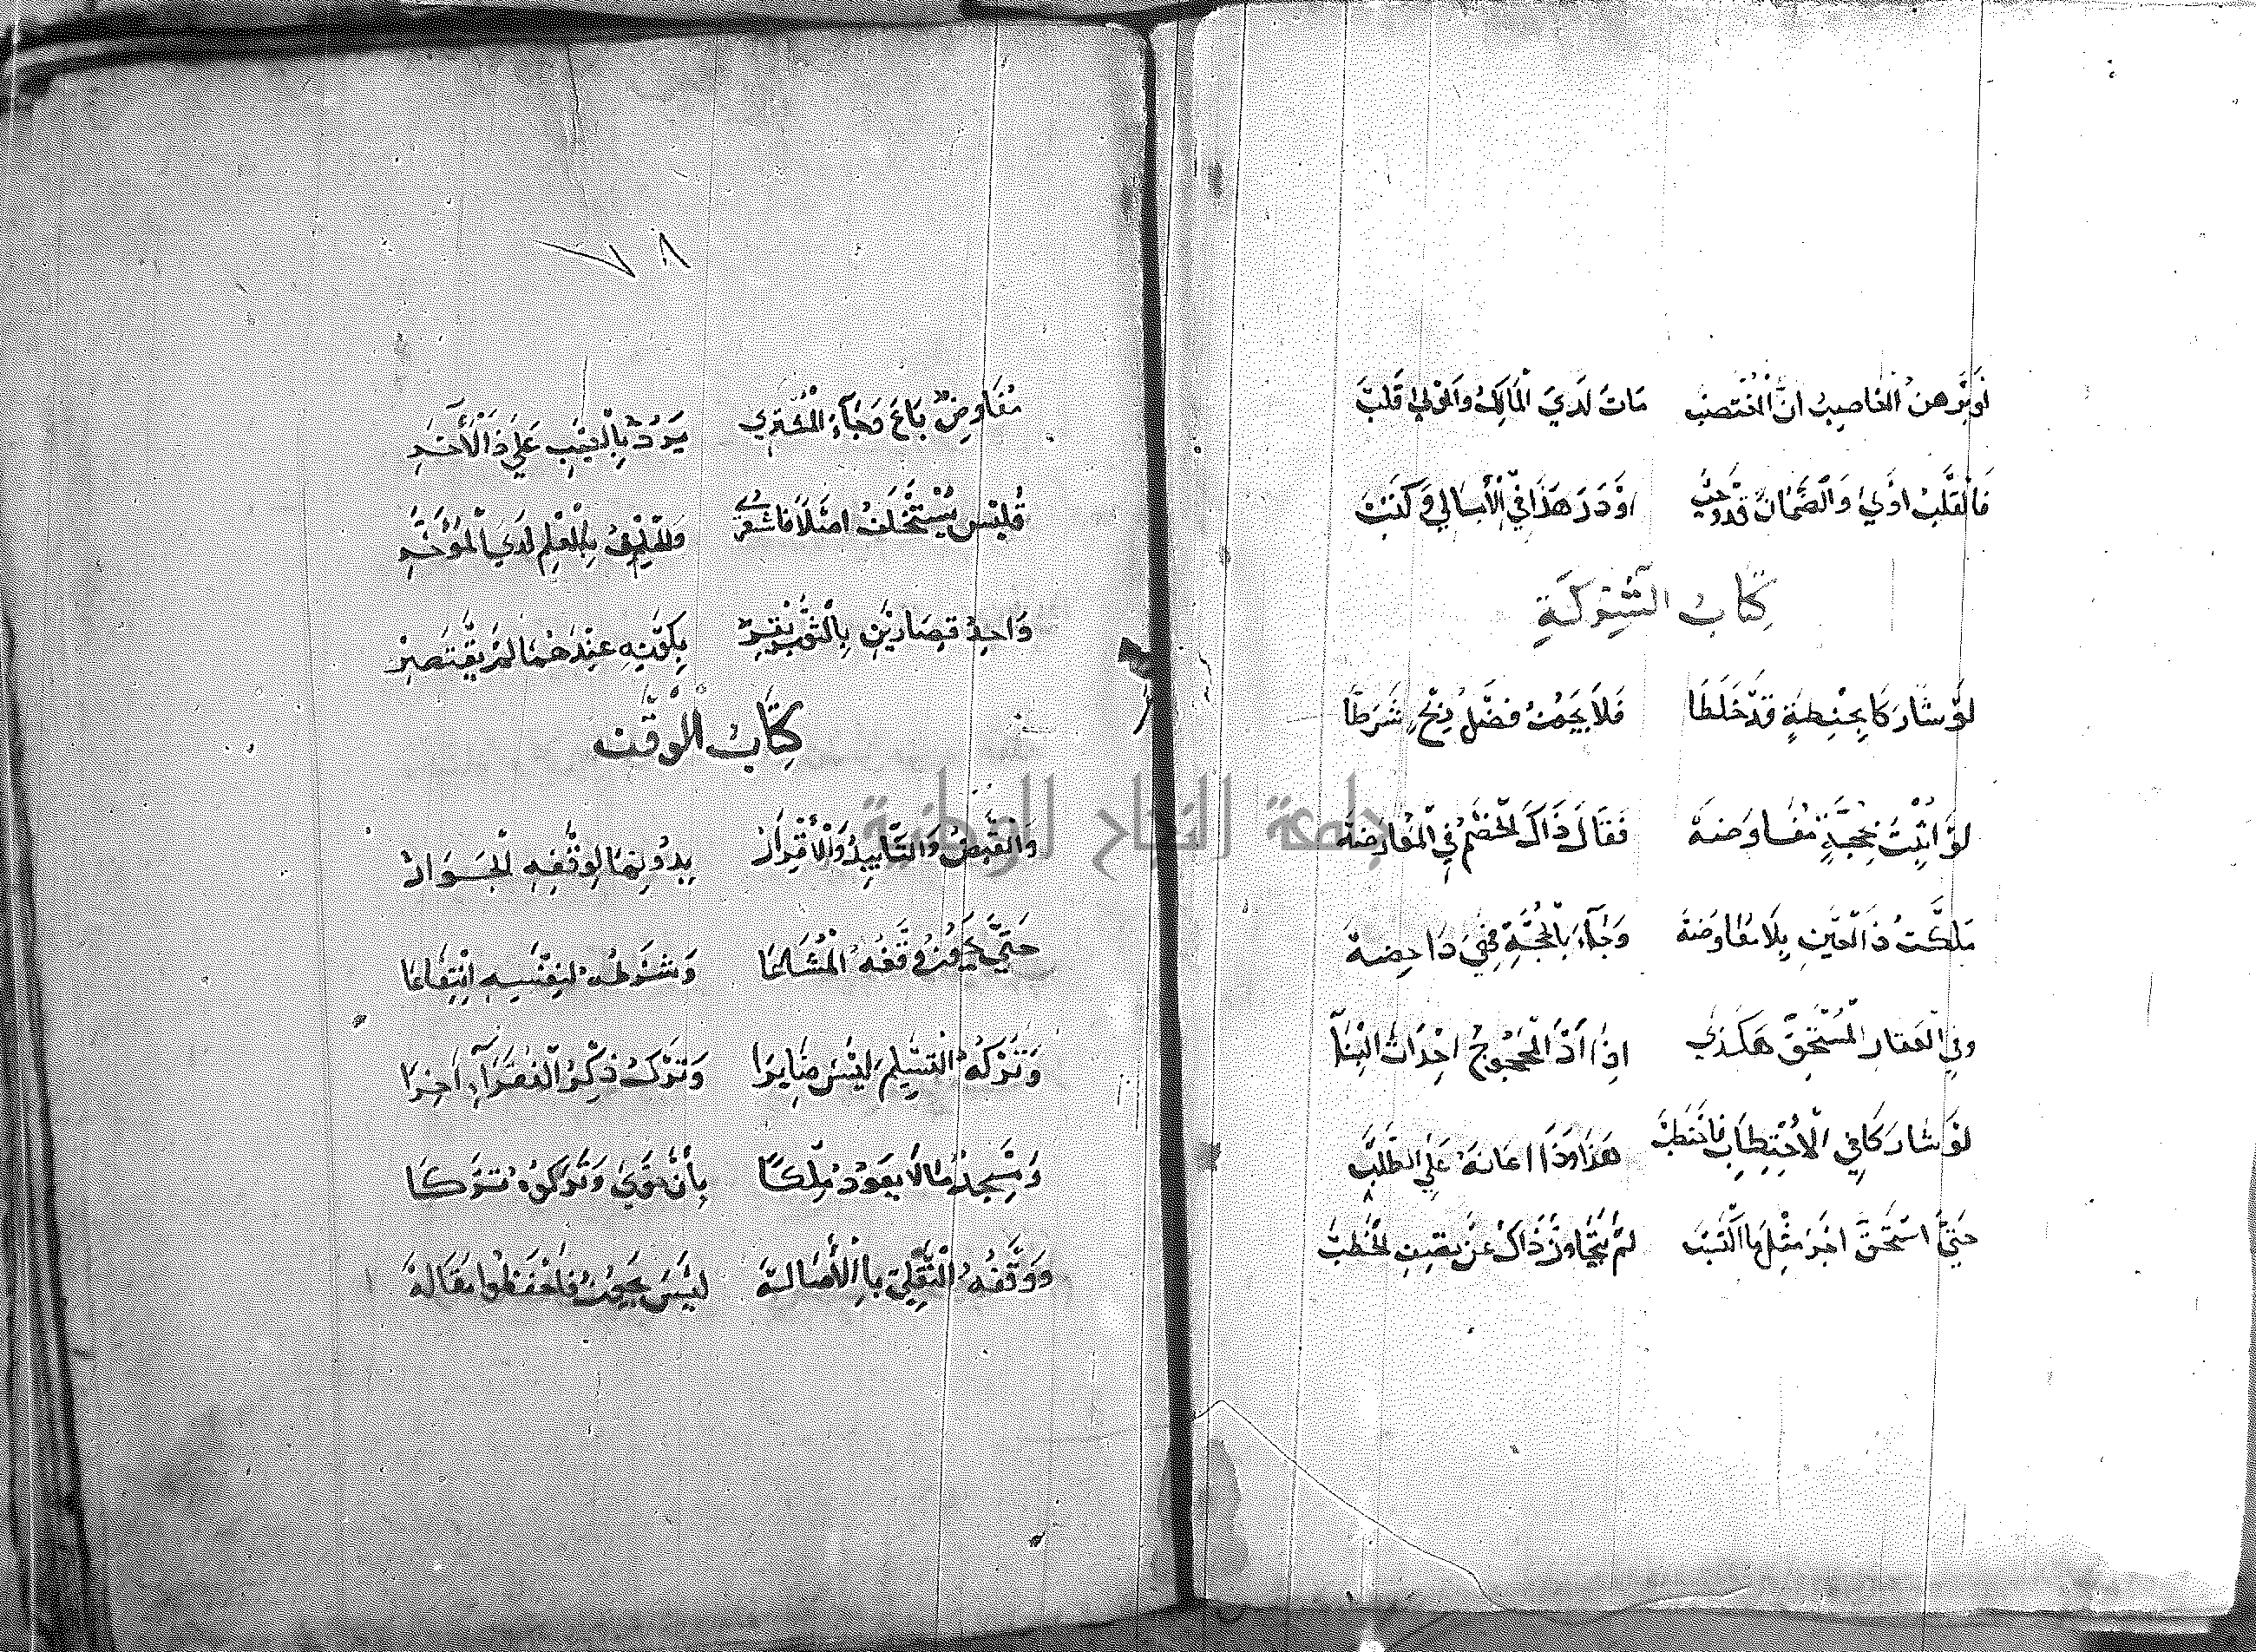 لَوْ بَرْهَنَ الغَاصِبُ انَّ المُغْتَصَبْ مَاتَ لَدَيَ الْمَالِكْ وَالمَوْلَى قَلَبْ
فَالقَلْبُ اوْلَى وَالضَّمَانُ قَدْ وَجَبْ
كِتَابُ الشِّرْكَةِ
لَوْ شَارَكَا بِحِنْطَةٍ قَدْ خَلَطَا فَلَا يَجُوزُ فَضْلُ رِبْحٍ شَرَطَا
لَوْ اثْبَتَ بِحُجَّةٍ مُفَاوَضَهْ فَقَالَ ذَاكَ الْخَصْمُ فِي الْمُعَارَضَهْ
مَلَكْتُ ذَا العَيْنِ بِلَا مُفَاوَضَهْ وَجَاءَ بِالْحُجَّةِ فَهْيَ دَاحِضَهْ
وفي العَقَارِ الْمُسْتَحَقِّ هَكَذَي اذَا ادَّا الْمَحْجُوجُ احْدَاثَ البِنَا
لَوْ شَارَكَا فِي الْاحْتِطَابِ فَاحْتَطَبْ هَذَا وَذَا اعَانَهُ عَلَى الطَّلَبْ
حَتَّى اسْتَحَقَّ اجْرَ مِثْلِ مَا اكْتَسَبْ لَمْ يَتَجَاوَزْ ذَاكَ عَنْ نِصْفِ الْحَطَبْ
٧٨
مُفَاوِضٌ بَاعَ وَجَاءَ الْمُشْتَرِي يَرُدُّ بِالْعَيْبِ عَلَى ذَا الْآخَرِ
فَلَيْسَ يُسْتَحْلَفُ اصْلًا فَاشْعُرِ وَلْيَحْلِفْ بِالْعِلْمِ لَدَيَ الْمُؤَخَّرِ
وَاحِدُ قَصَّارَيْنِ بِالثَّوْبِ يُقِرْ بِكَوْنِهِ عِنْدَهُمَا لَمْ يَقْتَصِرْ
كِتَابُ الْوَقْفِ
وَالْقَبْضُ وَالتَّابِيدُ وَالْأِفْرَازُ بِدُونِهَا لِوَقْفِهِ الْجَوَازُ
حَتَّى يَجُوزُ وَقْفُهُ الْمُشَاعَا وَشَرْطُهُ لِنَفْسِهِ انْتِفَاعَا
وَتَرْكُهُ التَسْلِيمَ لَيْسَ ضَايِرَا وَتَرْكُ ذِكْرِ الْفُقَرَآءِ آخِرَا
وَمَسْجِدٌ مَا لَا يَعُودُ مِلْكَا بِأَنْ ثَوَى وَتَرَكُوهُ تَرْكَا
وَوَقْفُهُ النَّقْلِيَّ بِالْأَصَالَهْ لَيْسَ يَجُوزُ فَاحْفَظُوا مَقَالَهْ
جامعة النجاح الوطنية